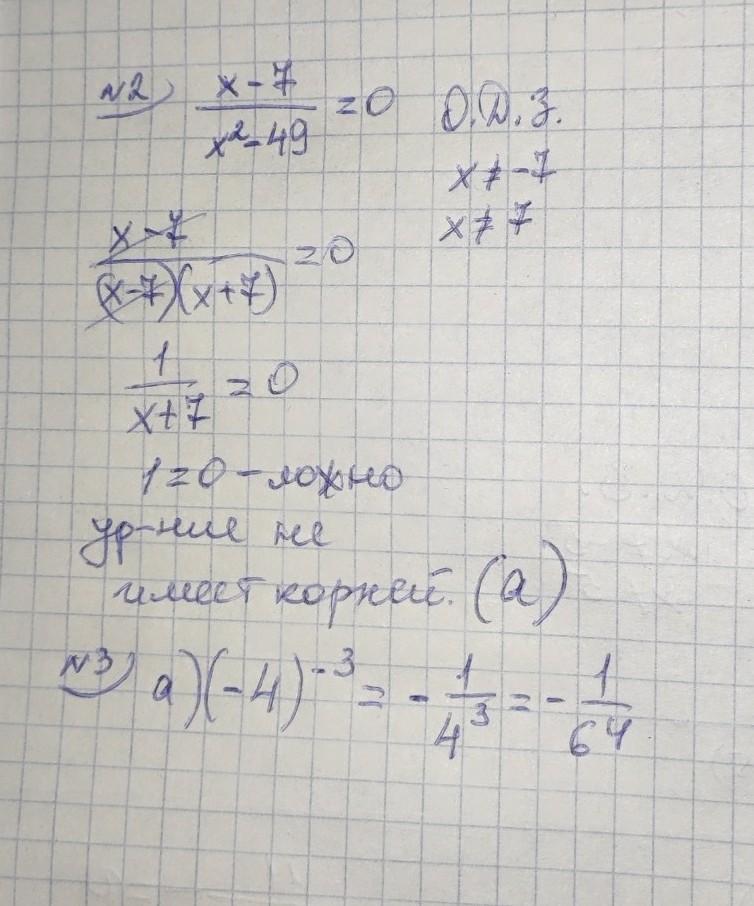 №2) (x-7)/(x²-49) = 0 О.Д.З.
x ≠ -7
x ≠ 7
(x-7)/((x-7)(x+7)) = 0
1/(x+7) = 0
1=0 - ложно
ур-ние не
имеет корней. (а)
№3) а) (-4)⁻³ = - 1/4³ = - 1/64